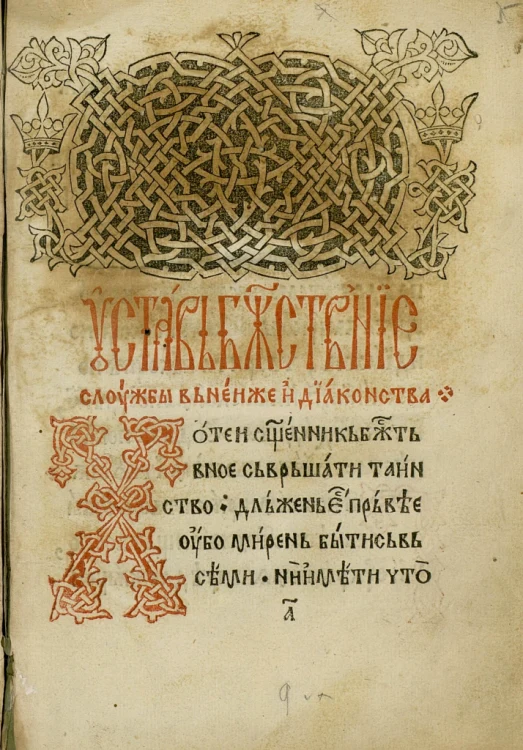 Оу҆ста́въ бж҃ст҆вны́іе
слоу́жбы вьне́нже и҆ дїа́конства
Хо́теи сщ҃е́нникь бж҃ть
вное сьврьшати таин
ство : дль́жень є҆́с҃ прь́вѣе
оу҆́бо мире́нь бы́ти сьвь
сѣ́ми · нѝ и҆мѣ́ти чтò
а҃